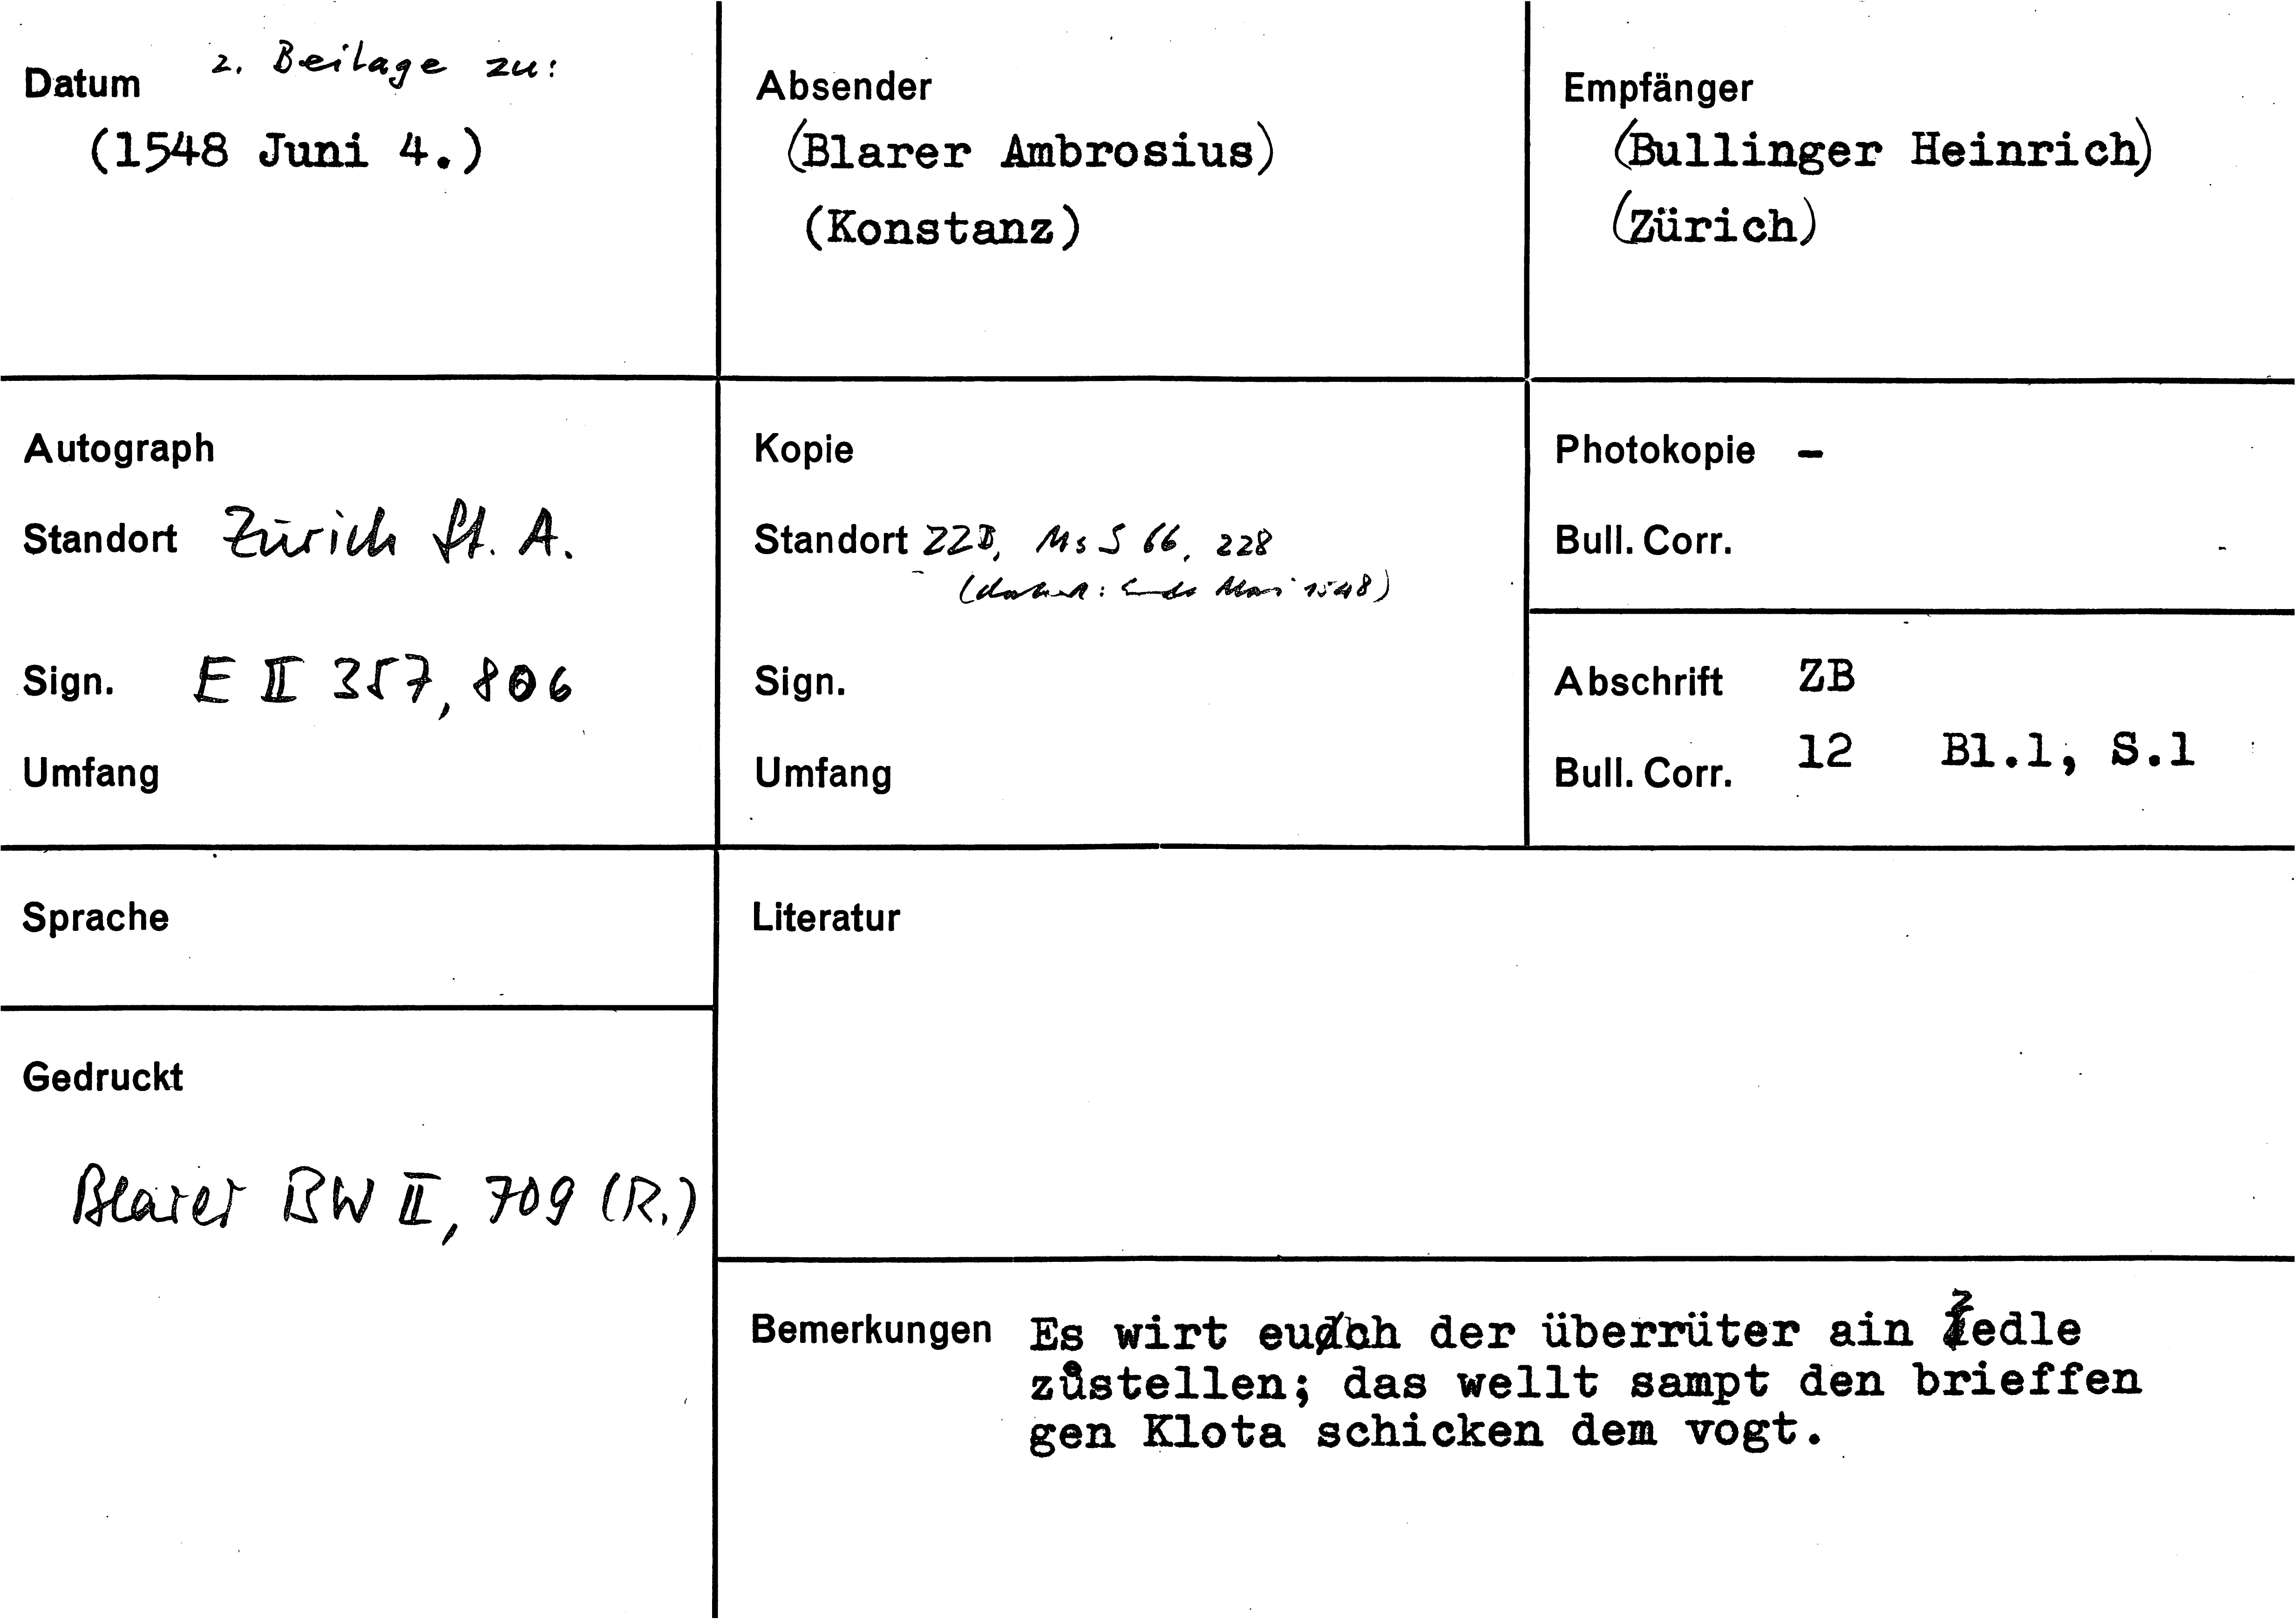 Datum 2. Beilage zu:
(1548 Juni 4.)
Absender
(Blarer Ambrosius)
(Konstanz)
Empfänger
(Bullinger Heinrich)
(Zürich)
Autograph
Standort Zürich St. A.
Sign. E II 357, 806
Umfang
Kopie
Standort ZZB, Ms S 66, 228
(datiert: Ende Mai 1548)
Sign.
Umfang
Photokopie -
Bull. Corr.
Abschrift ZB
Bull. Corr. 12 Bl.1, S.1
Sprache
Gedruckt
Blarer BW II, 709 (R.)
Literatur
Bemerkungen Es wirt euch der überrüter ain Zedle
zůstellen; das wellt sampt den brieffen
gen Klota schicken dem vogt.